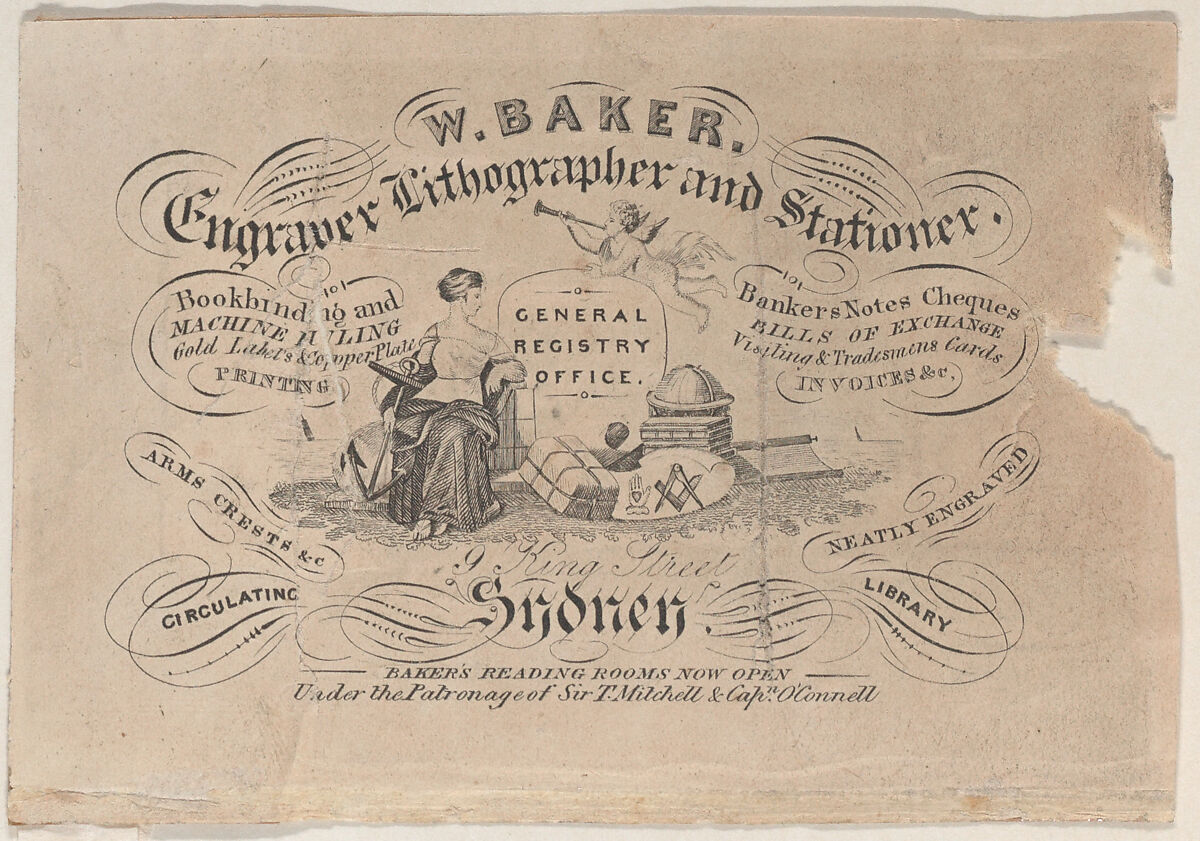 W. BAKER.
Engraver Lithographer and Stationer.
Bookbinding and
MACHINE RULING
Gold Labels & Copper Plate
PRINTING
GENERAL
REGISTRY
OFFICE.
Bankers Notes Cheques
BILLS OF EXCHANGE
Visiting & Tradesmens Cards
INVOICES &c.
ARMS CRESTS &c
NEATLY ENGRAVED
9 King Street
Sydney.
CIRCULATING
LIBRARY
BAKER'S READING ROOMS NOW OPEN
Under the Patronage of Sir T. Mitchell & Capn. O'Connell